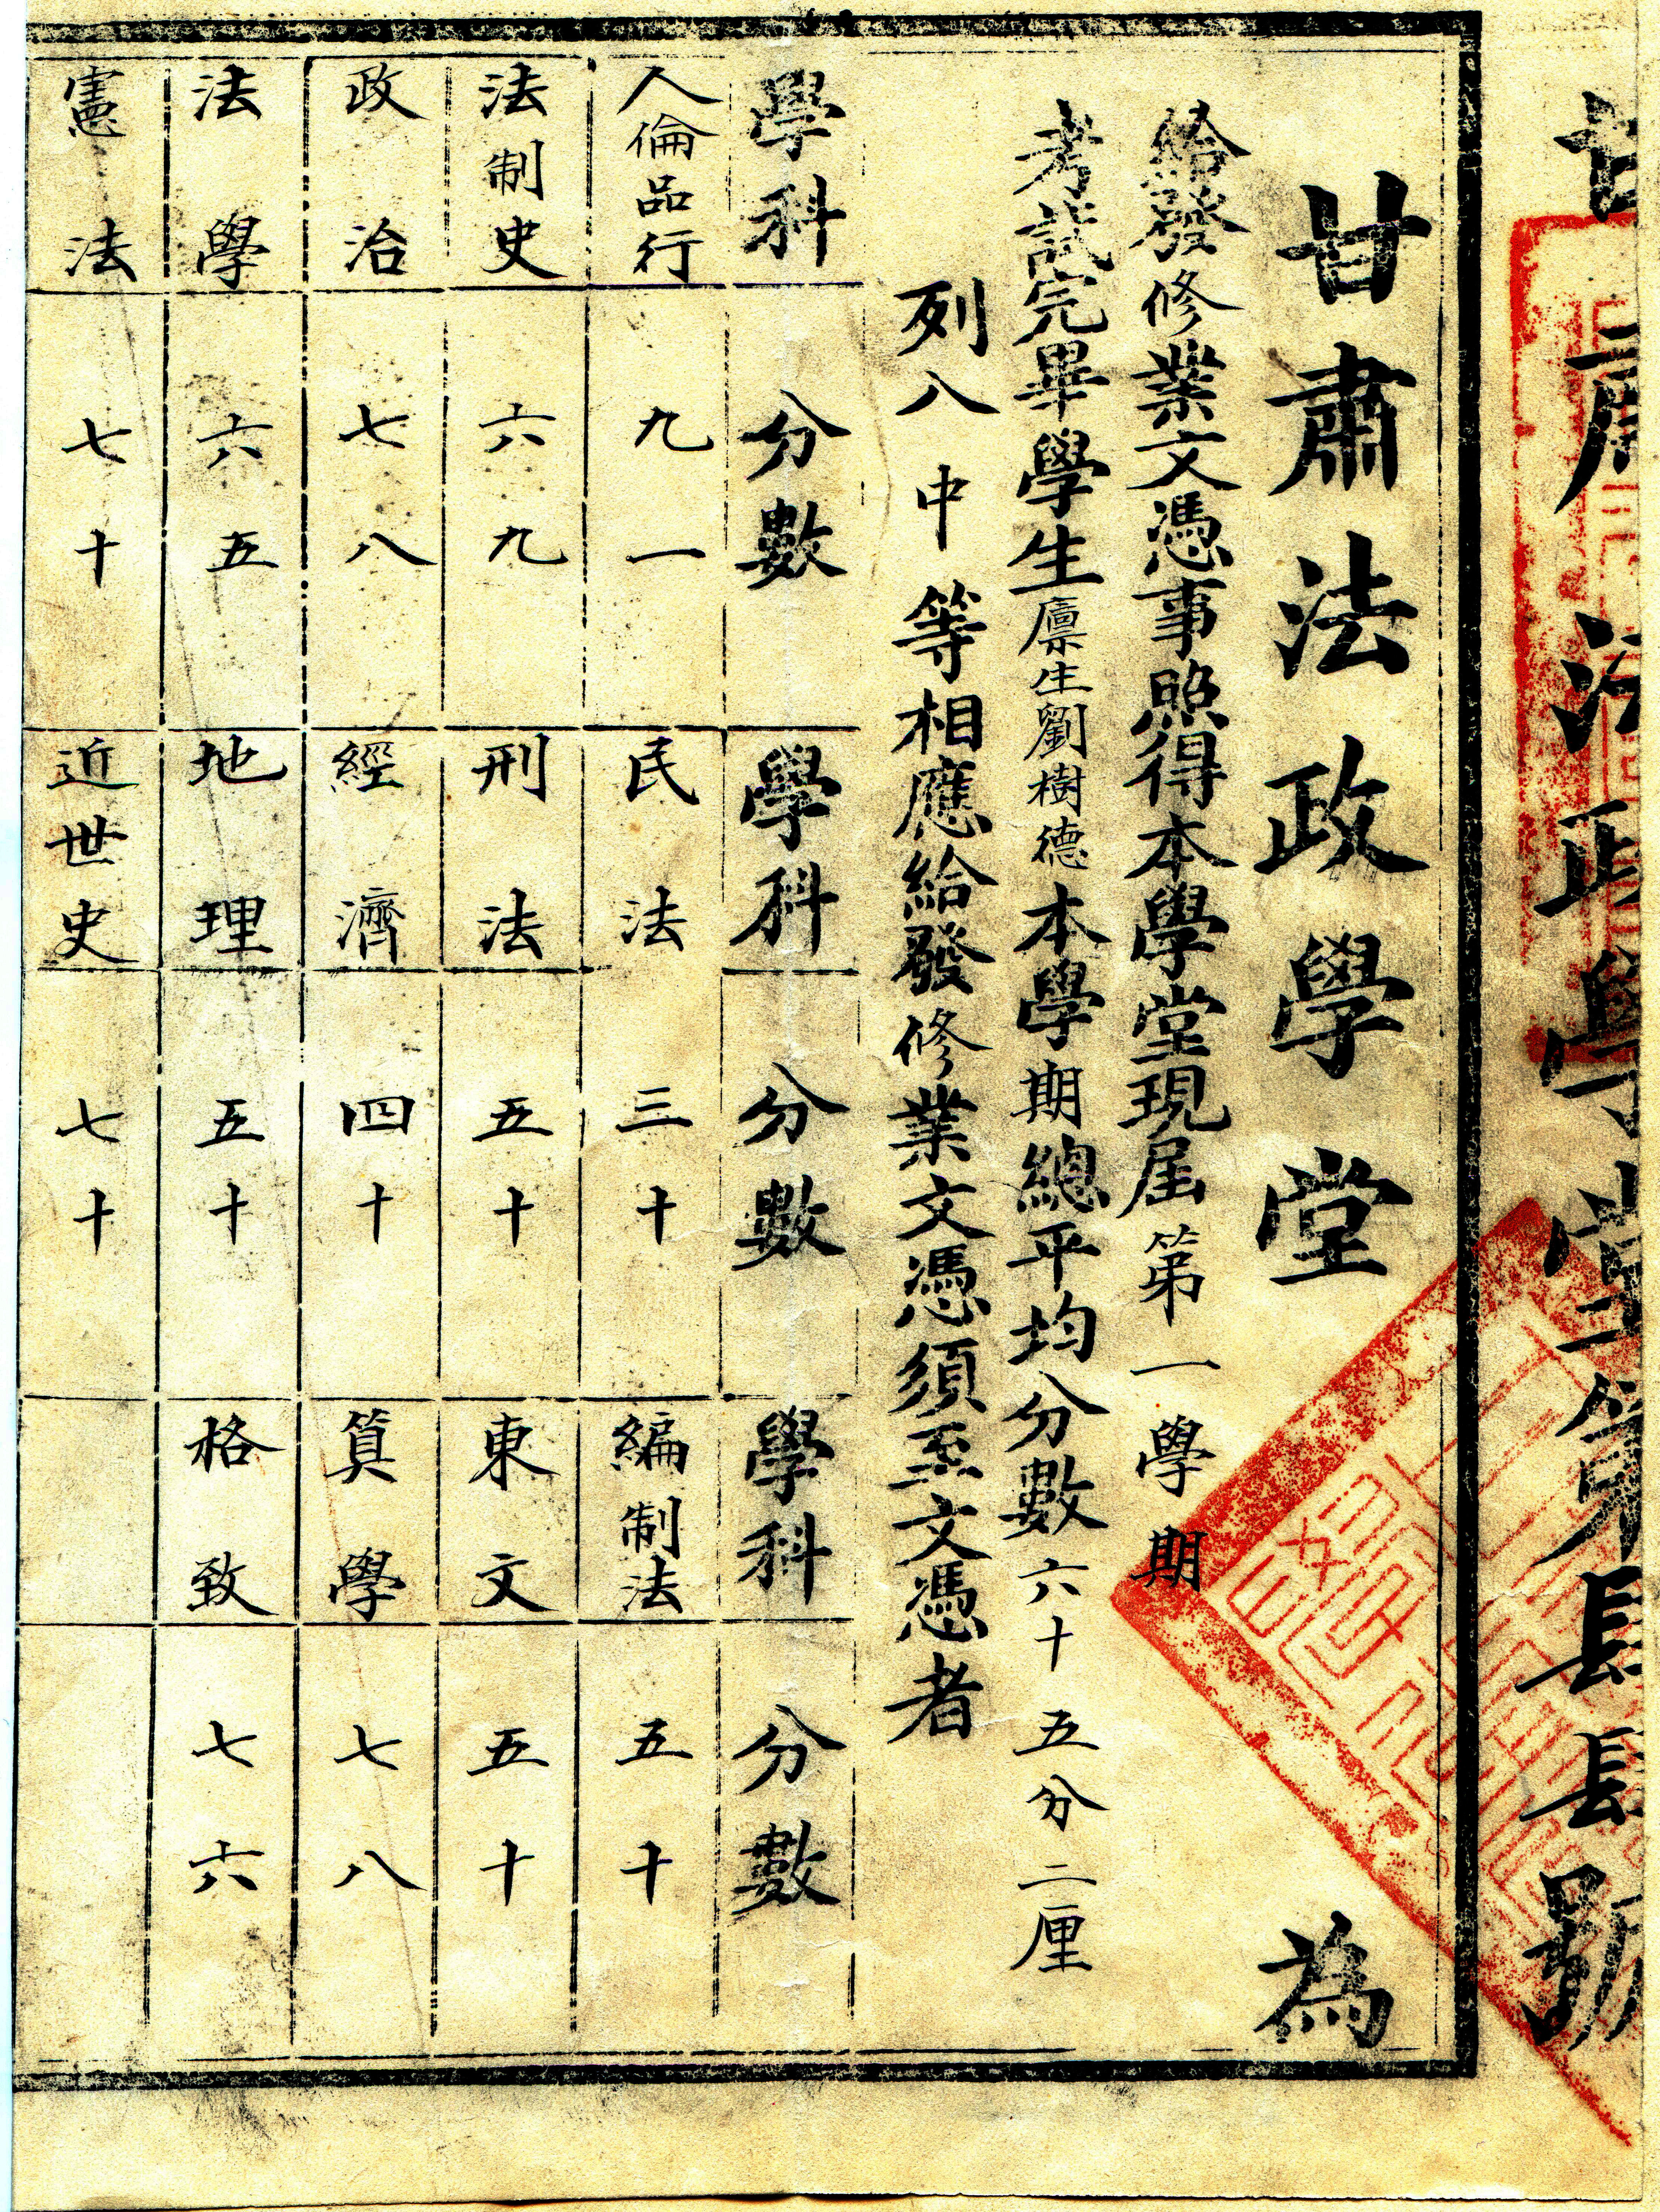 甘肅法政學堂第長長號
甘肅法政學堂為
給發修業文憑事照得本學堂現屆第一學期
考試完畢學生廩生劉樹德本學期總平均分數六十五分二厘
列八中等相應給發修業文憑須至文憑者
學科 分數 學科 分數 學科 分數
人倫品行 九一 民法 三十 編制法 五十
法制史 六九 刑法 五十 東文 五十
政治 七八 經濟 四十 算學 七八
法學 六五 地理 五十 格致 七六
憲法 七十 近世史 七十